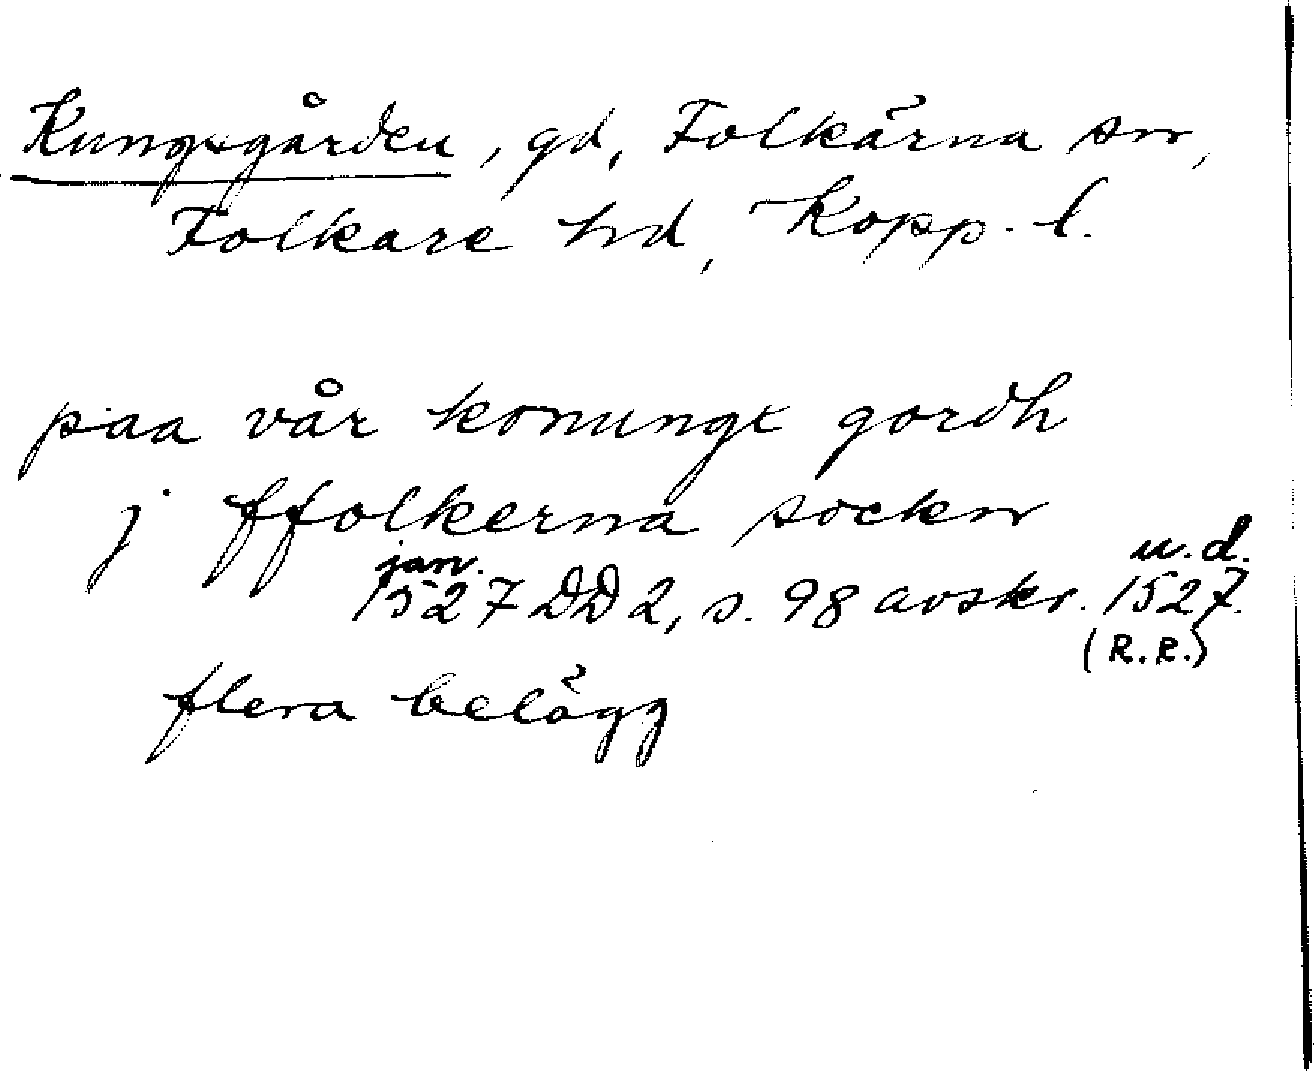 Kungsgården, gd, Folkärna sn,
Folkare hd, Kopp. l.
paa vår konungx gordh
j ffolkerna sockn
jan. u.d.
1527 DD 2, s. 98 avskr. 1527.
(R.R.)
flera belägg